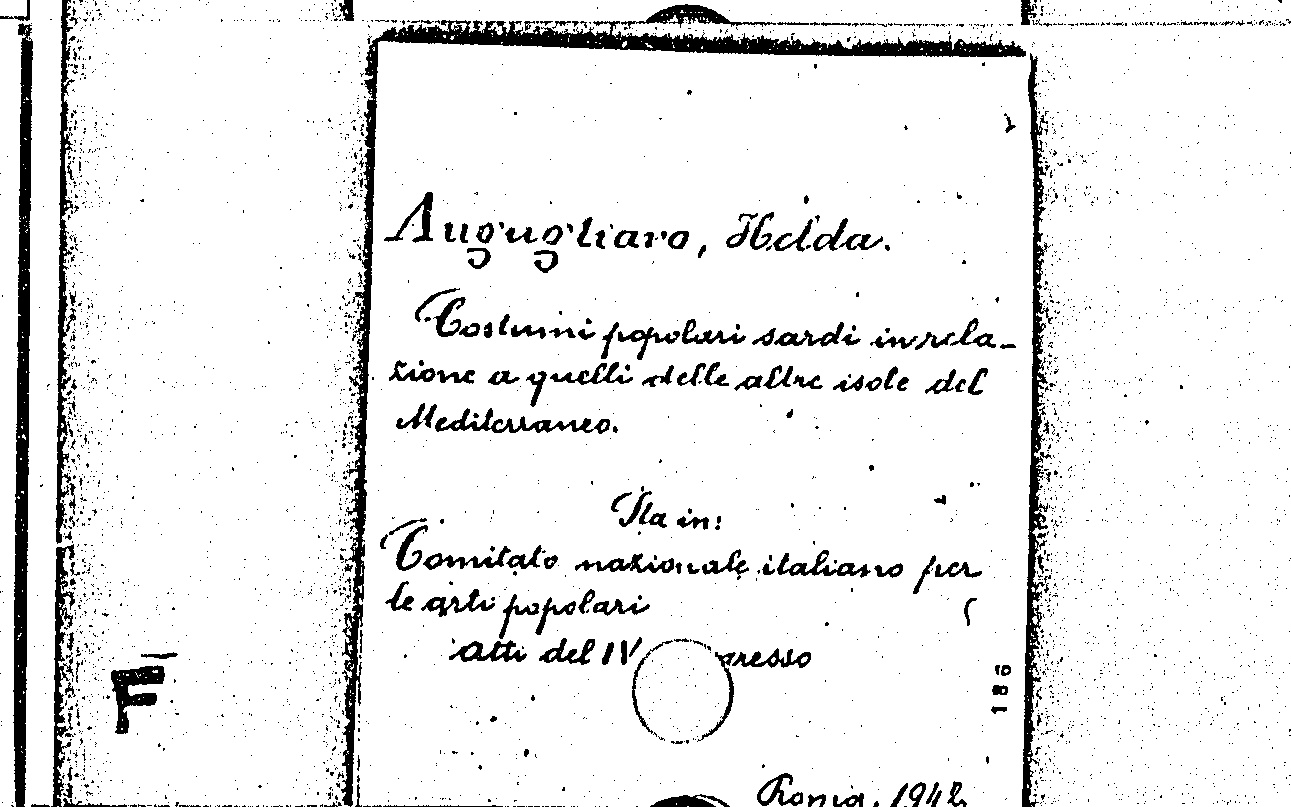 Augugliaro, Helda.
Costumi popolari sardi in rela-
zione a quelli delle altre isole del
Mediterraneo.
Sta in:
Comitato nazionale italiano per
le arti popolari
Atti del IV gresso
186
F
Roma, 1942